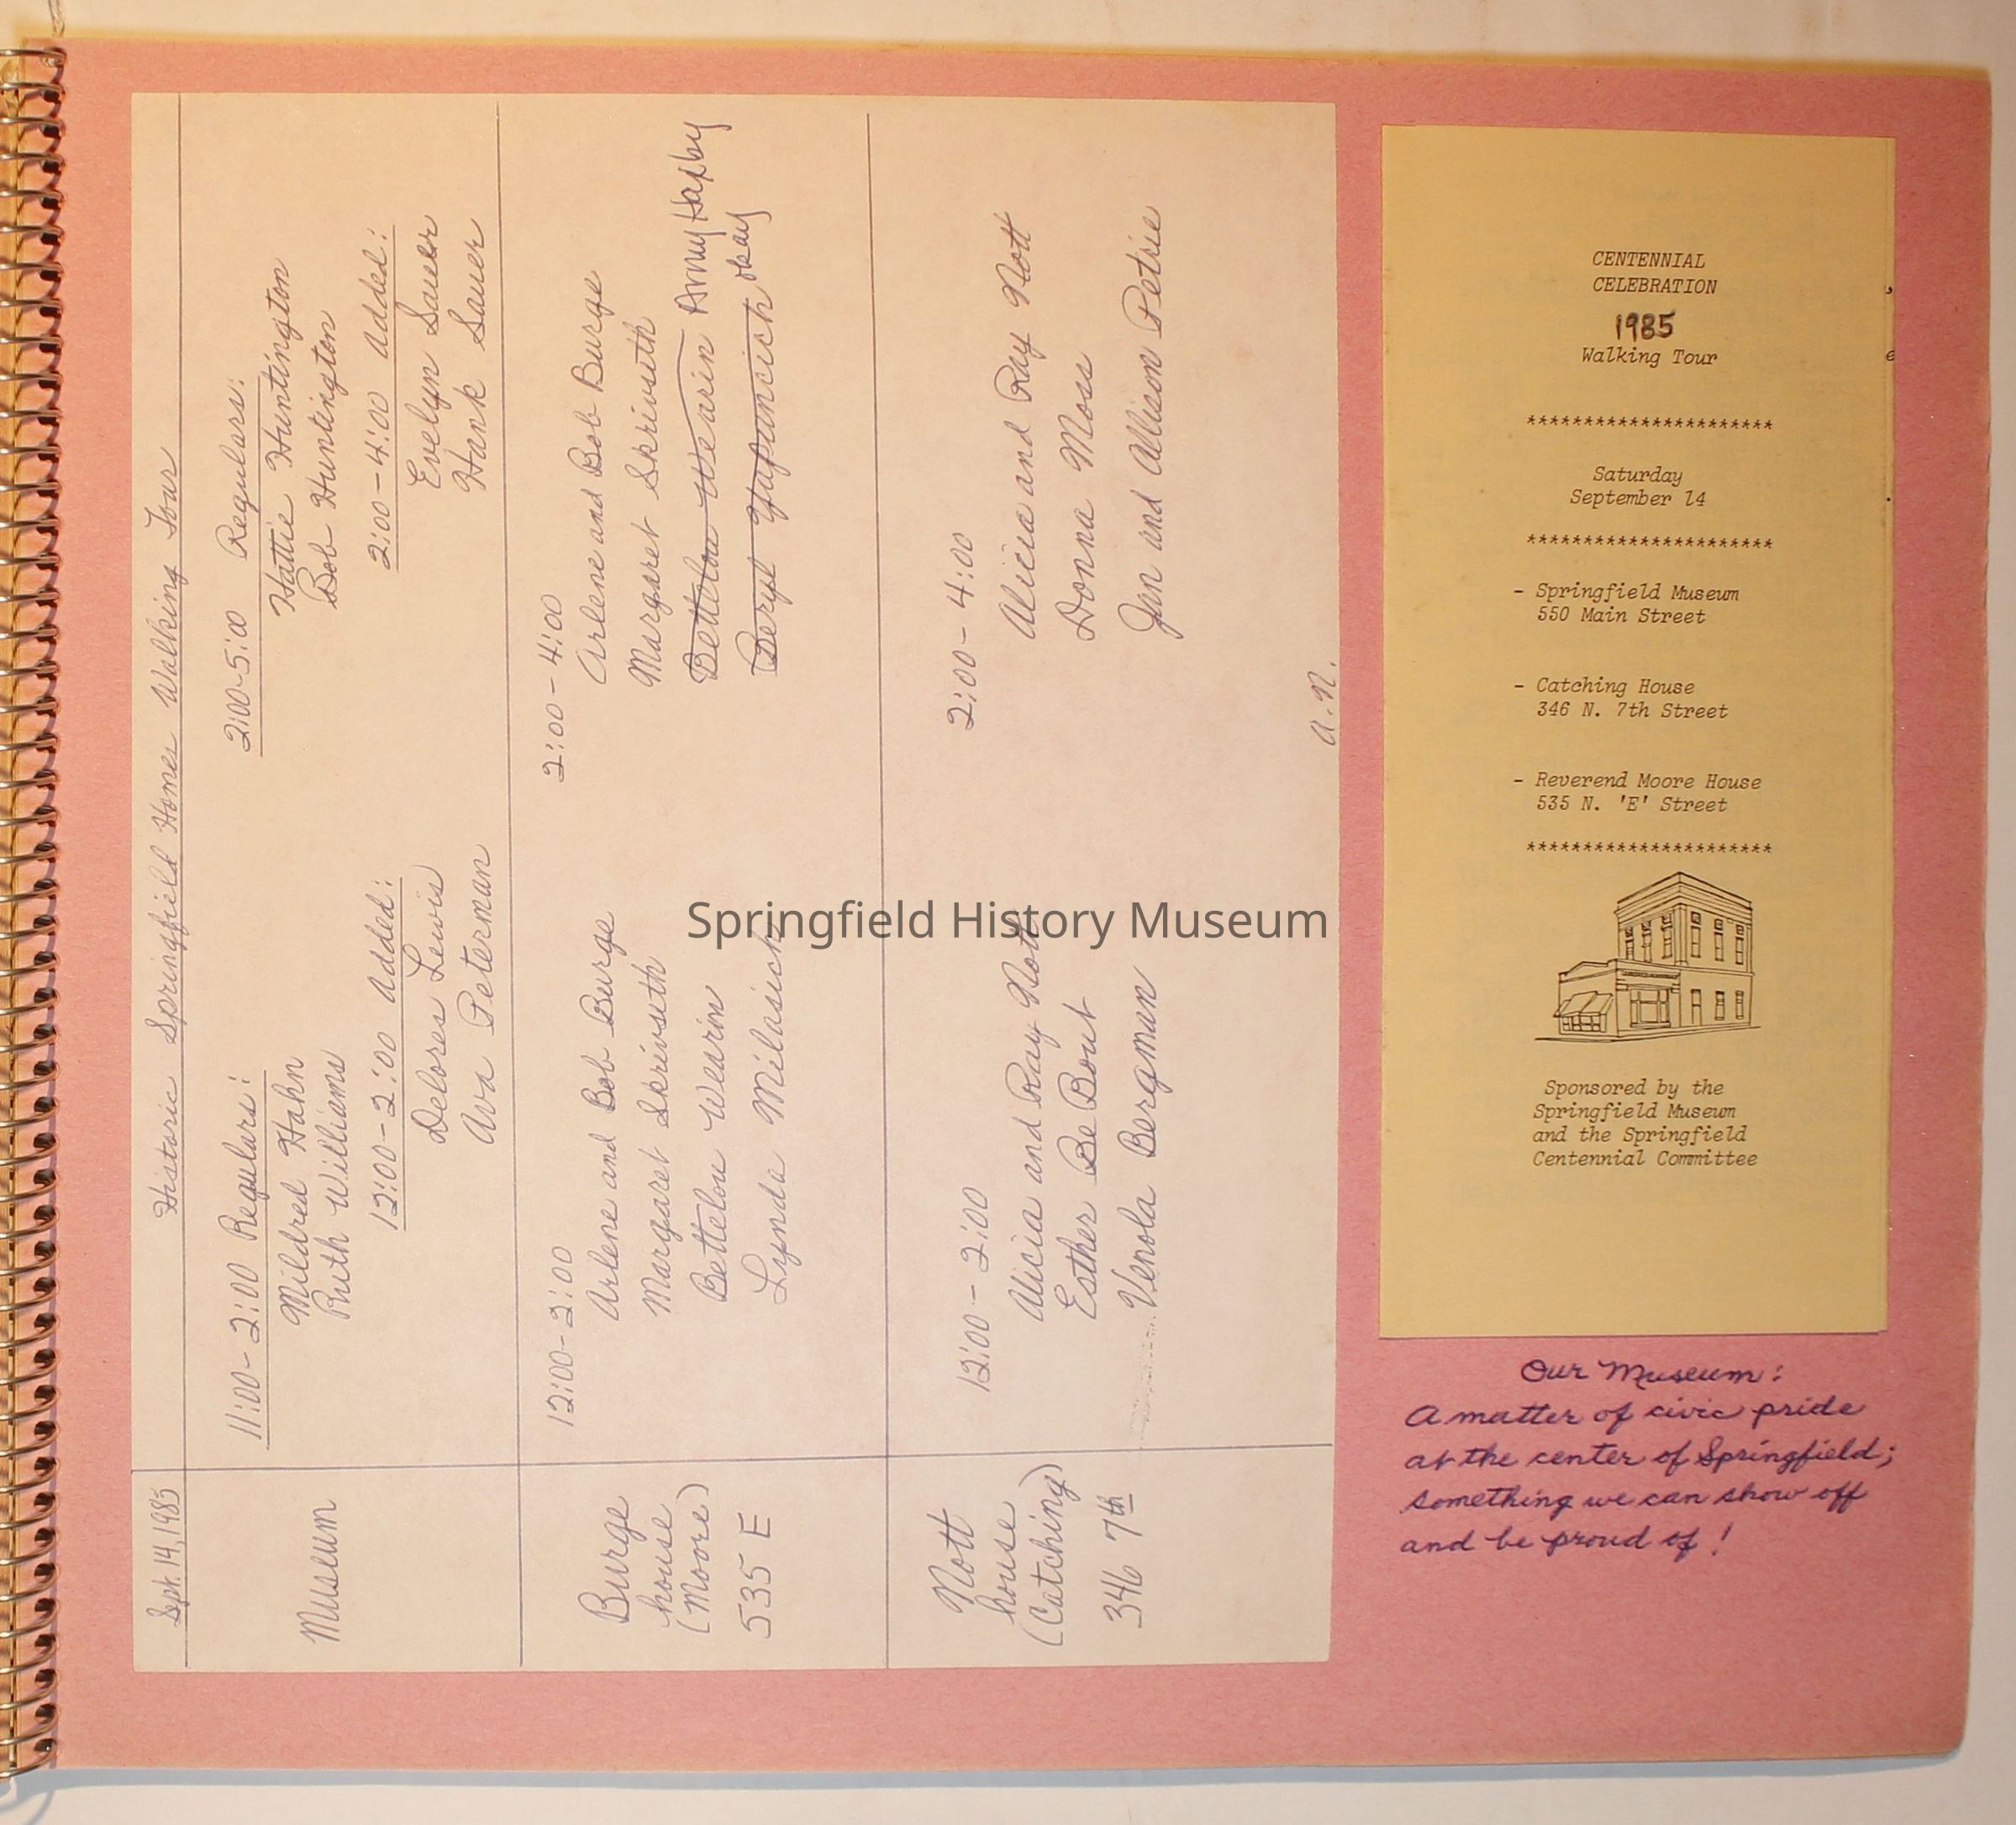 Historic Springfield Homes Walking Tour
Sept. 14, 1985
Museum
11:00-2:00 Regulars:
Mildred Hahn
Ruth Williams
12:00-2:00 Added:
Delores Lewis
Ava Peterman
2:00-5:00 Regulars:
Hattie Huntington
Bob Huntington
2:00-4:00 Added:
Evelyn Sauer
Hank Sauer
Burge
house
(Moore)
535 E
12:00-2:00
Arlene and Bob Burge
Margaret Skrivseth
Bettelou Wearin
Lynda Milasich
2:00-4:00
Arlene and Bob Burge
Margaret Skrivseth
Bettelou Wearin
Beryl okay
Nott
house
(Catching)
346 7th
12:00-2:00
Alicia and Ray Nott
Esther BeBout
Venola Bergman
2:00-4:00
Alicia and Ray Nott
Donna Moss
Jan and Allison Petrie
a.n.
CENTENNIAL
CELEBRATION
1985
Walking Tour
**********************
Saturday
September 14
**********************
- Springfield Museum
550 Main Street
- Catching House
346 N. 7th Street
- Reverend Moore House
535 N. 'E' Street
**********************
Sponsored by the
Springfield Museum
and the Springfield
Centennial Committee
Our Museum:
A matter of civic pride
at the center of Springfield;
something we can show off
and be proud of!
Springfield History Museum